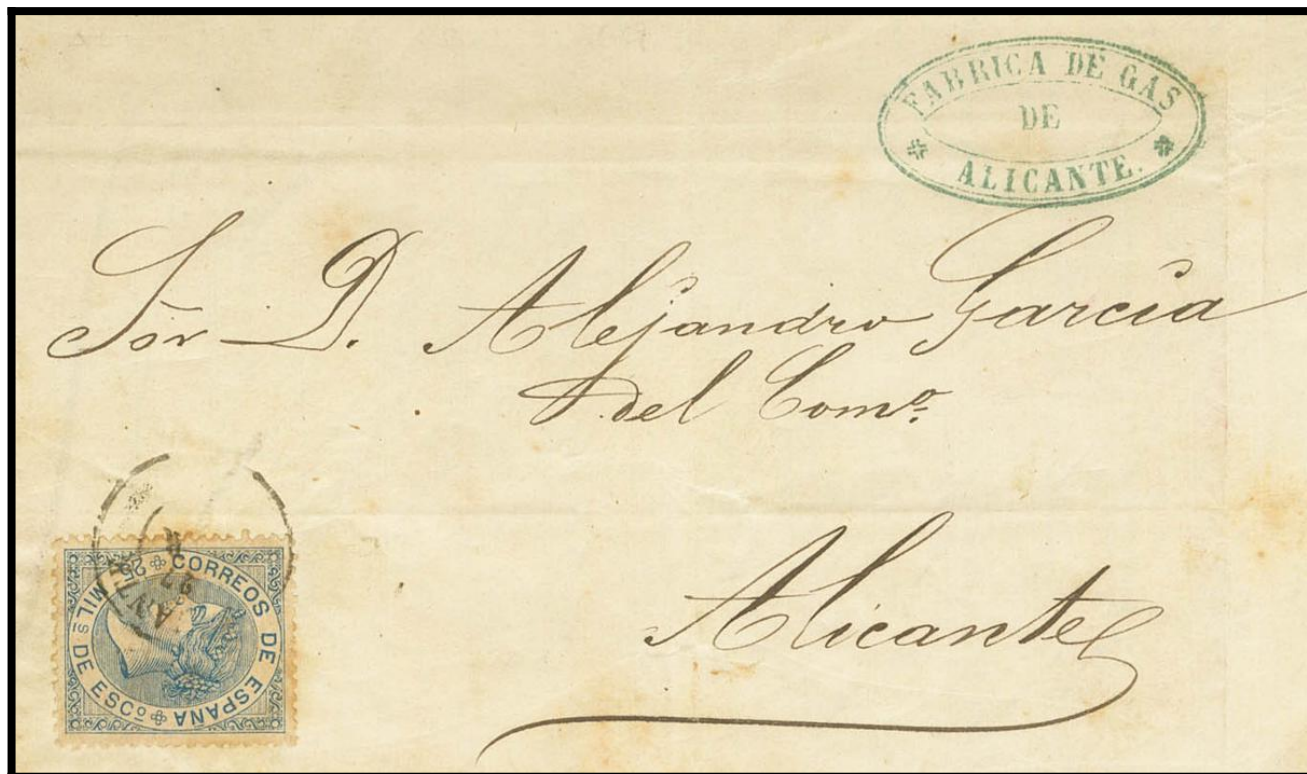 FABRICA DE GAS
DE
ALICANTE.
Sor D. Alejandro Garcia
del Comº
Alicante
CORREOS DE ESPAÑA
25 MILs DE ESCº